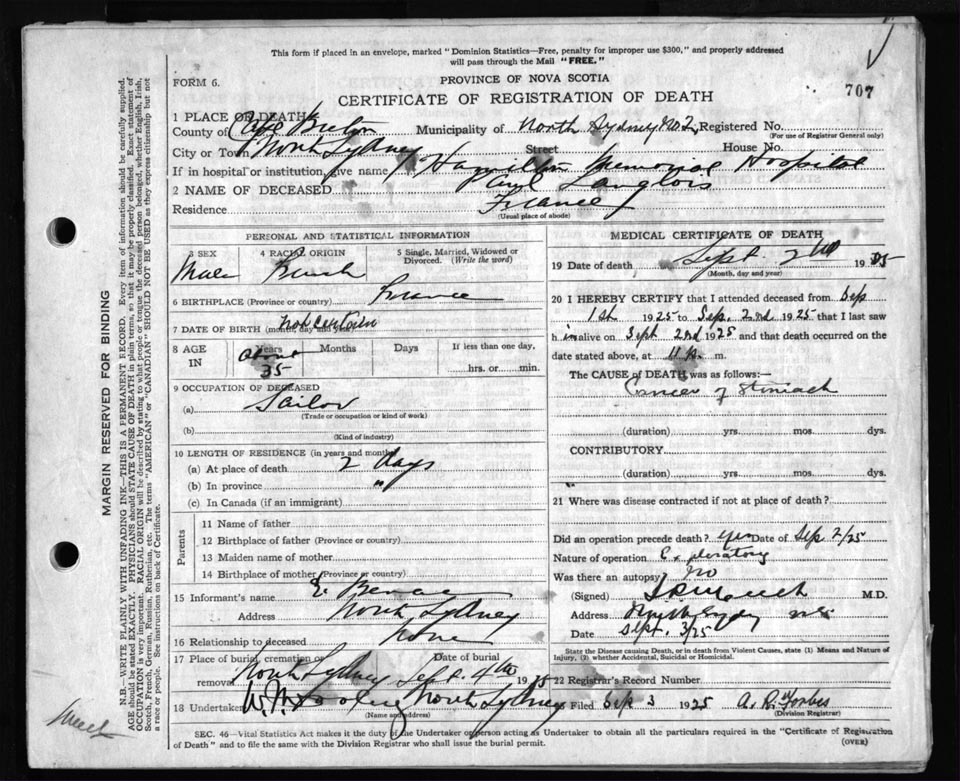 This form if placed in an envelope, marked "Dominion Statistics—Free, penalty for improper use $300," and properly addressed
will pass through the Mail "FREE."
FORM 6.
PROVINCE OF NOVA SCOTIA
CERTIFICATE OF REGISTRATION OF DEATH
707
1 PLACE OF DEATH
County of Cape Breton Municipality of North Sydney No 2, Registered No.
(For use of Registrar General only)
City or Town North Sydney Street House No.
If in hospital or institution, give name Hamilton Memorial Hospital
2 NAME OF DECEASED Langlois
Residence France
(Usual place of abode)
PERSONAL AND STATISTICAL INFORMATION
3 SEX Male
4 RACIAL ORIGIN French
5 Single, Married, Widowed or Divorced. (Write the word)
6 BIRTHPLACE (Province or country) France
7 DATE OF BIRTH (month, day and year) not certain
8 AGE IN Years about 35 Months Days If less than one day, hrs. or min.
9 OCCUPATION OF DECEASED
(a) Sailor
(Trade or occupation or kind of work)
(b)
(Kind of industry)
10 LENGTH OF RESIDENCE (in years and months)
(a) At place of death 2 days
(b) In province "
(c) In Canada (if an immigrant)
Parents
11 Name of father
12 Birthplace of father (Province or country)
13 Maiden name of mother
14 Birthplace of mother (Province or country)
15 Informant's name
Address North Sydney
16 Relationship to deceased None
17 Place of burial, cremation or removal North Sydney Date of burial Sept. 4th 1925
18 Undertaker North Sydney
(Name and address)
MEDICAL CERTIFICATE OF DEATH
19 Date of death Sept. 2nd 1925
(Month, day and year)
20 I HEREBY CERTIFY that I attended deceased from Sep
1st 1925 to Sep. 2nd 1925 that I last saw
him alive on Sept 2nd 1925 and that death occurred on the
date stated above, at 11 p. m.
The CAUSE of DEATH was as follows:—
Cancer of Stomach
(duration) yrs. mos. dys.
CONTRIBUTORY
(duration) yrs. mos. dys.
21 Where was disease contracted if not at place of death?
Did an operation precede death? yes Date of Sep 2/25
Nature of operation Exploratory
Was there an autopsy? No
(Signed) M.D.
Address North Sydney N.S.
Date Sept. 3/25
State the Disease causing Death, or in death from Violent Causes, state (1) Means and Nature of
Injury, (2) whether Accidental, Suicidal or Homicidal.
22 Registrar's Record Number
Filed Sep 3 1925 A. R. Forbes
(Division Registrar)
SEC. 46—Vital Statistics Act makes it the duty of the Undertaker or person acting as Undertaker to obtain all the particulars required in the "Certificate of Registration
of Death" and to file the same with the Division Registrar who shall issue the burial permit.
(OVER)
MARGIN RESERVED FOR BINDING
N.B.—WRITE PLAINLY WITH UNFADING INK—THIS IS A PERMANENT RECORD. Every item of information should be carefully supplied.
AGE should be stated EXACTLY. PHYSICIANS should STATE CAUSE OF DEATH in plain terms, so that it may be properly classified. Exact statement of
OCCUPATION is very important. RACIAL ORIGIN will be described by stating to what people or tongue the deceased person belonged, whether English, Irish,
Scotch, French, German, Russian, Ruthenian, etc. The terms "AMERICAN" or "CANADIAN" SHOULD NOT BE USED as they express citizenship but not
a race or people. See instructions on back of Certificate.